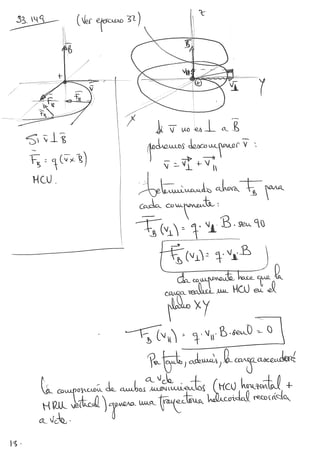 93. 149 (Ver ejercicio 32)
z
B
B
+
v
v⊥
Y
F_B
F_B
X
Si v ⊥ B
F_B = q (v × B)
MCU.
Si v no es ⊥ a B
podremos descomponer v :
v = v⊥ + v_{||}
Determinando ahora F_B para
cada componente:
F_B (v⊥) = q · v⊥ B · sen 90
F_B (v⊥) = q · v⊥ · B
Esta componente hace que la
carga realice un MCU en el
plano XY
F_B (v_{||}) = q · v_{||} · B · sen 0 = 0
Por tanto, además, la carga ascenderá
a v cte.
la composición de ambos movimientos (MCU horizontal +
MRU vertical) genera una trayectoria helicoidal recorrida
a v cte.
13.